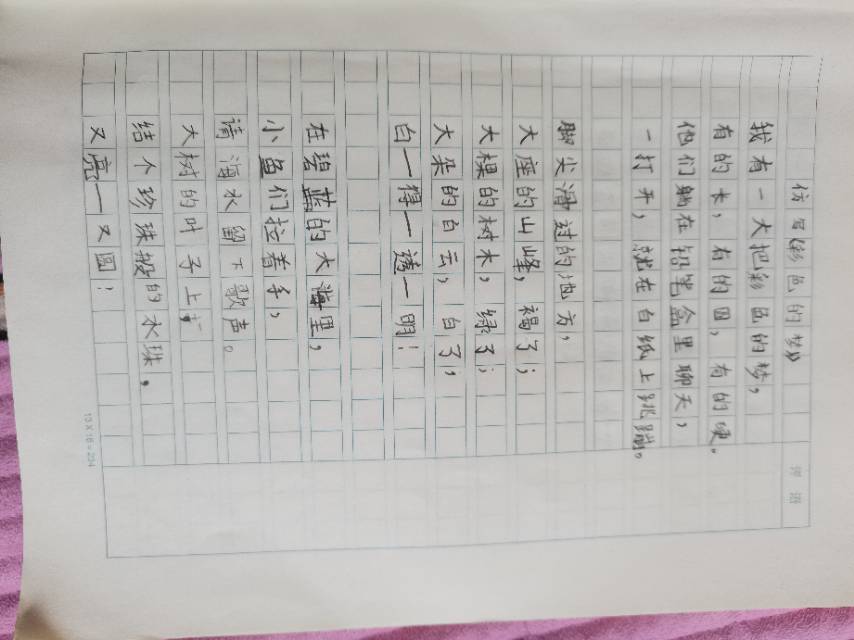 仿写《彩色的梦》
我有一大把彩色的梦，
有的长，有的圆，有的硬。
他们躺在铅笔盒里聊天，
一打开，就在白纸上跳蹦。
脚尖滑过的地方，
大座的山峰，褐了；
大棵的树木，绿了；
大朵的白云，白了，
白一得一透一明！
在碧蓝的大海里，
小鱼们拉着手，
请海水留下歌声。
大树的叶子上，
结个珍珠般的水珠，
又亮一又圆！
评语
13×18=234